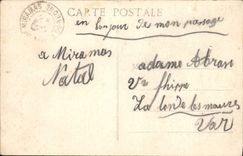 CARTE POSTALE
en bonjour de mon passage
a Miramas
Natal
Madame Abran
Vve Phippe
La londe les maures
Var